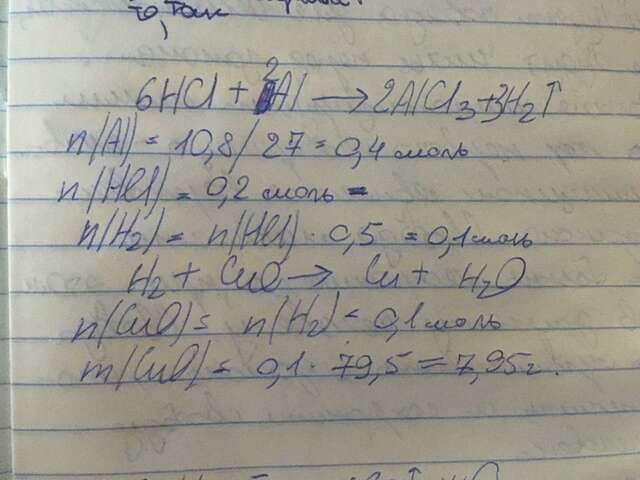 то, так
6HCl + 2Al → 2AlCl3 + 3H2↑
n(Al) = 10,8 / 27 = 0,4 моль
n(HCl) = 0,2 моль =
n(H2) = n(HCl) · 0,5 = 0,1 моль
H2 + CuO → Cu + H2O
n(CuO) = n(H2) = 0,1 моль
m(CuO) = 0,1 · 79,5 = 7,95 г.